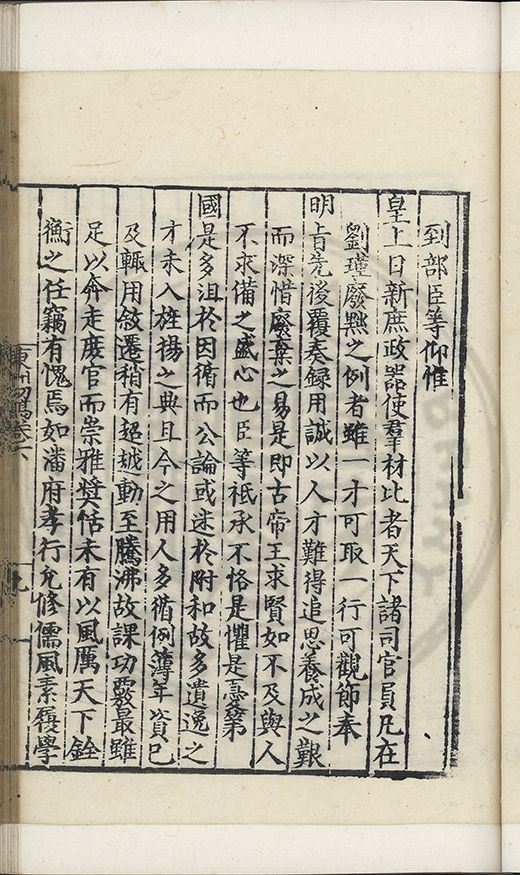 到部臣等仰惟
皇上日新庶政器使羣材比者天下諸司官員凡在
劉瑾廢黜之例者雖一才可取一行可觀節奉
明旨先後覆奏録用誠以人才難得追思養成之艱
而深惜廢棄之易是即古帝王求賢如不及與人
不求備之盛心也臣等祗承不恪是懼是憂第
國是多沮於因循而公論或迷於附和故多遺逸之
才未入旌揚之典且今之用人多循例簿年資已
及輒用敘遷稍有超越動至騰沸故課功覈最雖
足以奔走庶官而崇雅奬恬未有以風厲天下銓
衡之任竊有愧焉如潘府孝行允修儒風素履學
卷六
九